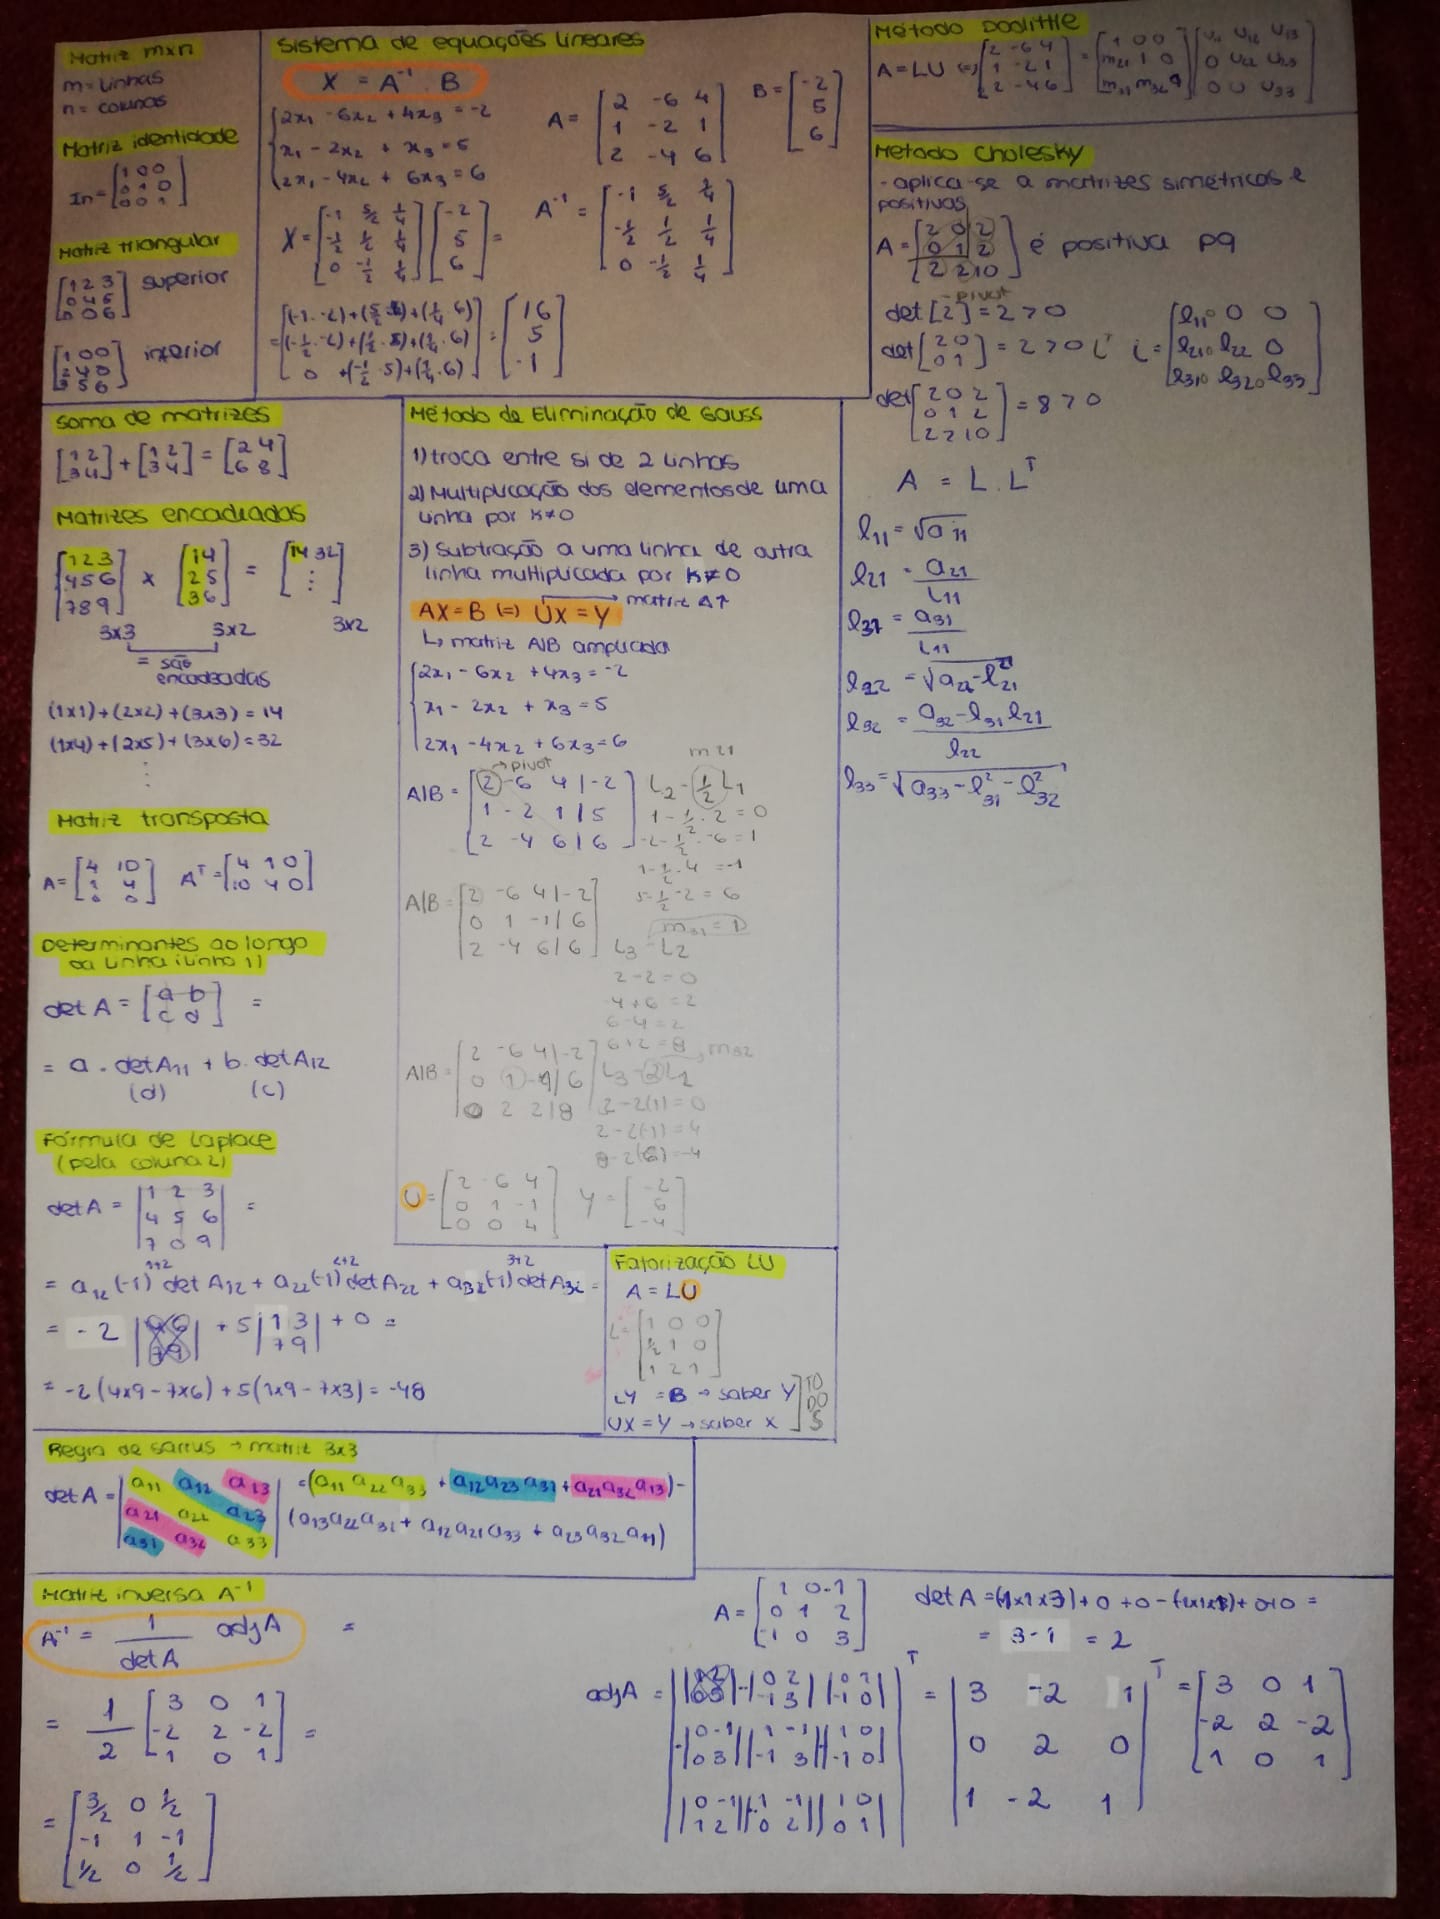 Matriz mxn
m = linhas
n = colunas
Matriz identidade
In = [1 0 0
0 1 0
0 0 1]
Matriz triangular
[1 2 3
0 4 5
0 0 6] superior
[1 0 0
2 4 0
3 5 6] inferior
Sistema de equações lineares
X = A⁻¹ . B
2x₁ - 6x₂ + 4x₃ = -2
x₁ - 2x₂ + x₃ = 5
2x₁ - 4x₂ + 6x₃ = 6
A = [2 -6 4
1 -2 1
2 -4 6]
B = [-2
5
6]
X = [-1 5/2 1/4
-1/2 1/2 1/4
0 -1/2 1/4] [-2
5
6] =
A⁻¹ = [-1 5/2 1/4
-1/2 1/2 1/4
0 -1/2 1/4]
= [(-1.-2)+(5/2.5)+(1/4.6)
(-1/2.-2)+(1/2.5)+(1/4.6)
0 +(-1/2.5)+(1/4.6)] = [16
5
-1]
Método Doolittle
A = LU (=) [2 -6 4
1 -2 1
2 -4 6] = [1 0 0
m21 1 0
m31 m32 1] [U11 U12 U13
0 U22 U23
0 0 U33]
Método Cholesky
- aplica-se a matrizes simétricas e
positivas
A = [2 0 2
0 1 2
2 2 10] é positiva pq
pivot
det [2] = 2 > 0
det [2 0
0 1] = 2 > 0
L = [l11 0 0
l21 l22 0
l31 l32 l33]
det [2 0 2
0 1 2
2 2 10] = 8 > 0
A = L . Lᵀ
l11 = √a11
l21 = a21 / L11
l31 = a31 / L11
l22 = √a22 - l²21
l32 = a32 - l31 l21 / l22
l33 = √a33 - l²31 - l²32
Soma de matrizes
[1 2
3 4] + [1 2
3 4] = [2 4
6 8]
Matrizes encadeadas
[1 2 3
4 5 6
7 8 9] x [1 4
2 5
3 6] = [14 32
⋮]
3x3 3x2 3x2
= são
encadeadas
(1x1)+(2x2)+(3x3) = 14
(1x4)+(2x5)+(3x6) = 32
⋮
Matriz transposta
A = [4 10
1 4
0 0] Aᵀ = [4 1 0
10 4 0]
Determinantes ao longo
da linha (linha 1)
det A = [a b
c d] =
= a . det A11 + b . det A12
(d) (c)
Fórmula de Laplace
(pela coluna 2)
det A = |1 2 3
4 5 6
7 0 9| =
= a12 (-1)¹⁺² det A12 + a22 (-1)²⁺² det A22 + a32 (-1)³⁺² det A32 =
= - 2 |4 6
7 9| + 5 |1 3
7 9| + 0 =
= -2 (4x9 - 7x6) + 5 (1x9 - 7x3) = -48
Método de Eliminação de Gauss
1) troca entre si de 2 linhas
2) Multiplicação dos elementos de uma
linha por K≠0
3) Subtração a uma linha de outra
linha multiplicada por K≠0
AX = B (=) UX = Y → matriz Δ↑
↳ matriz A|B ampliada
2x₁ - 6x₂ + 4x₃ = -2
x₁ - 2x₂ + x₃ = 5
2x₁ - 4x₂ + 6x₃ = 6
→ pivot
m21
A|B = [2 -6 4 | -2
1 -2 1 | 5
2 -4 6 | 6]
L2 - 1/2 L1
1 - 1/2 . 2 = 0
-2 - 1/2 . -6 = 1
1 - 1/2 . 4 = -1
5 - 1/2 . -2 = 6
A|B = [2 -6 4 | -2
0 1 -1 | 6
2 -4 6 | 6]
m31 = 1
L3 - L2
2 - 2 = 0
-4 + 6 = 2
6 - 4 = 2
6 + 2 = 8
A|B = [2 -6 4 | -2
0 1 -1 | 6
0 2 2 | 8]
m32
L3 - 2 L2
2 - 2(1) = 0
2 - 2(-1) = 4
8 - 2(6) = -4
U = [2 -6 4
0 1 -1
0 0 4] Y = [-2
6
-4]
Fatorização LU
A = LU
L = [1 0 0
1/2 1 0
1 2 1]
LY = B → saber Y
UX = Y → saber X
TO
DO
S
Regra de Sarrus → matriz 3x3
det A = |a11 a12 a13
a21 a22 a23
a31 a32 a33|
= (a11 a22 a33 + a12 a23 a31 + a21 a32 a13) -
(a13 a22 a31 + a12 a21 a33 + a23 a32 a11)
Matriz inversa A⁻¹
A⁻¹ = 1 / det A adj A =
= 1/2 [3 0 1
-2 2 -2
1 0 1] =
= [3/2 0 1/2
-1 1 -1
1/2 0 1/2]
A = [1 0 -1
0 1 2
-1 0 3]
det A = (1x1x3) + 0 + 0 - (-1x1x-1) + 0+0 =
= 3 - 1 = 2
adj A = | |1 2
0 3| -|0 2
-1 3| |0 1
-1 0|
-|0 -1
0 3| |1 -1
-1 3| -|1 0
-1 0|
|0 -1
1 2| -|1 -1
0 2| |1 0
0 1| |ᵀ
= |3 -2 1
0 2 0
1 -2 1|ᵀ = [3 0 1
-2 2 -2
1 0 1]